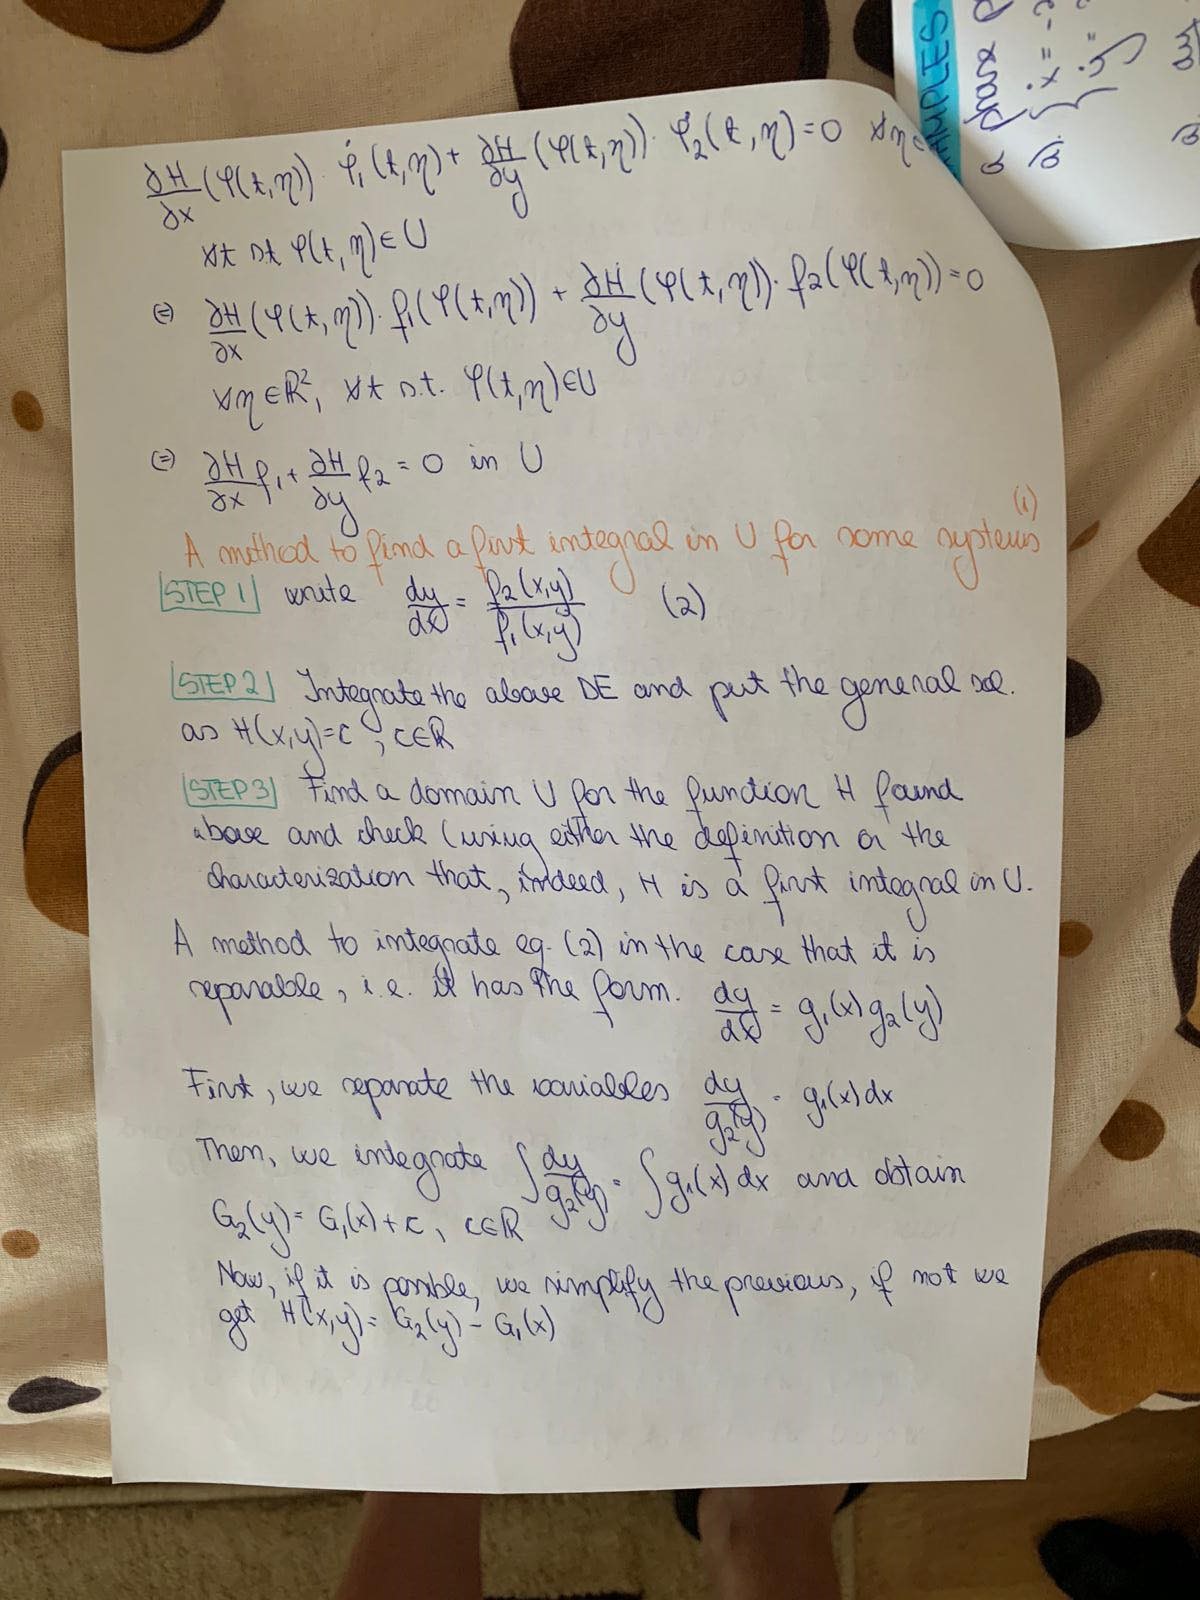 ∂H/∂x (φ(t,η)) · φ̇₁(t,η) + ∂H/∂y (φ(t,η)) · φ̇₂(t,η) = 0 ∀η
∀t s.t φ(t,η) ∈ U
(=) ∂H/∂x (φ(t,η)) · f₁(φ(t,η)) + ∂H/∂y (φ(t,η)) · f₂(φ(t,η)) = 0
∀η ∈ ℝ², ∀t s.t. φ(t,η) ∈ U
(=) ∂H/∂x f₁ + ∂H/∂y f₂ = 0 in U
(1)
A method to find a first integral in U for some systems
STEP 1 write dy/dx = f₂(x,y)/f₁(x,y) (2)
STEP 2 Integrate the above DE and put the general sol.
as H(x,y)=c, c∈ℝ
STEP 3 Find a domain U for the function H found
above and check (using either the definition or the
characterization that, indeed, H is a first integral in U.
A method to integrate eq. (2) in the case that it is
separable, i.e. it has the form. dy/dx = g₁(x) g₂(y)
First, we separate the variables dy/g₂(y) = g₁(x) dx
Then, we integrate ∫ dy/g₂(y) = ∫ g₁(x) dx and obtain
G₂(y) = G₁(x) + c, c∈ℝ
Now, if it is possible, we simplify the previous, if not we
get H(x,y) = G₂(y) - G₁(x)
MPLES
phase
ẋ = -
ẏ =